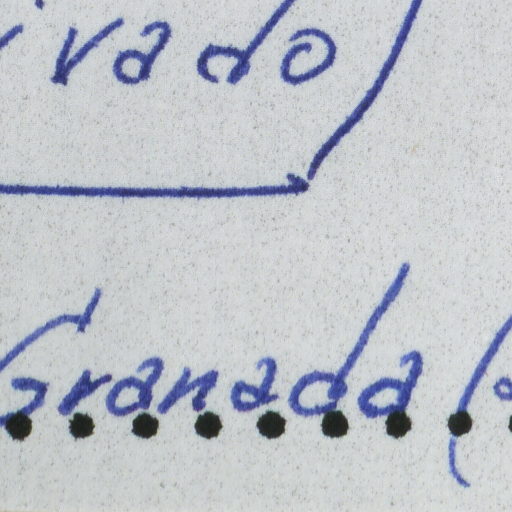 ivado
Granada (